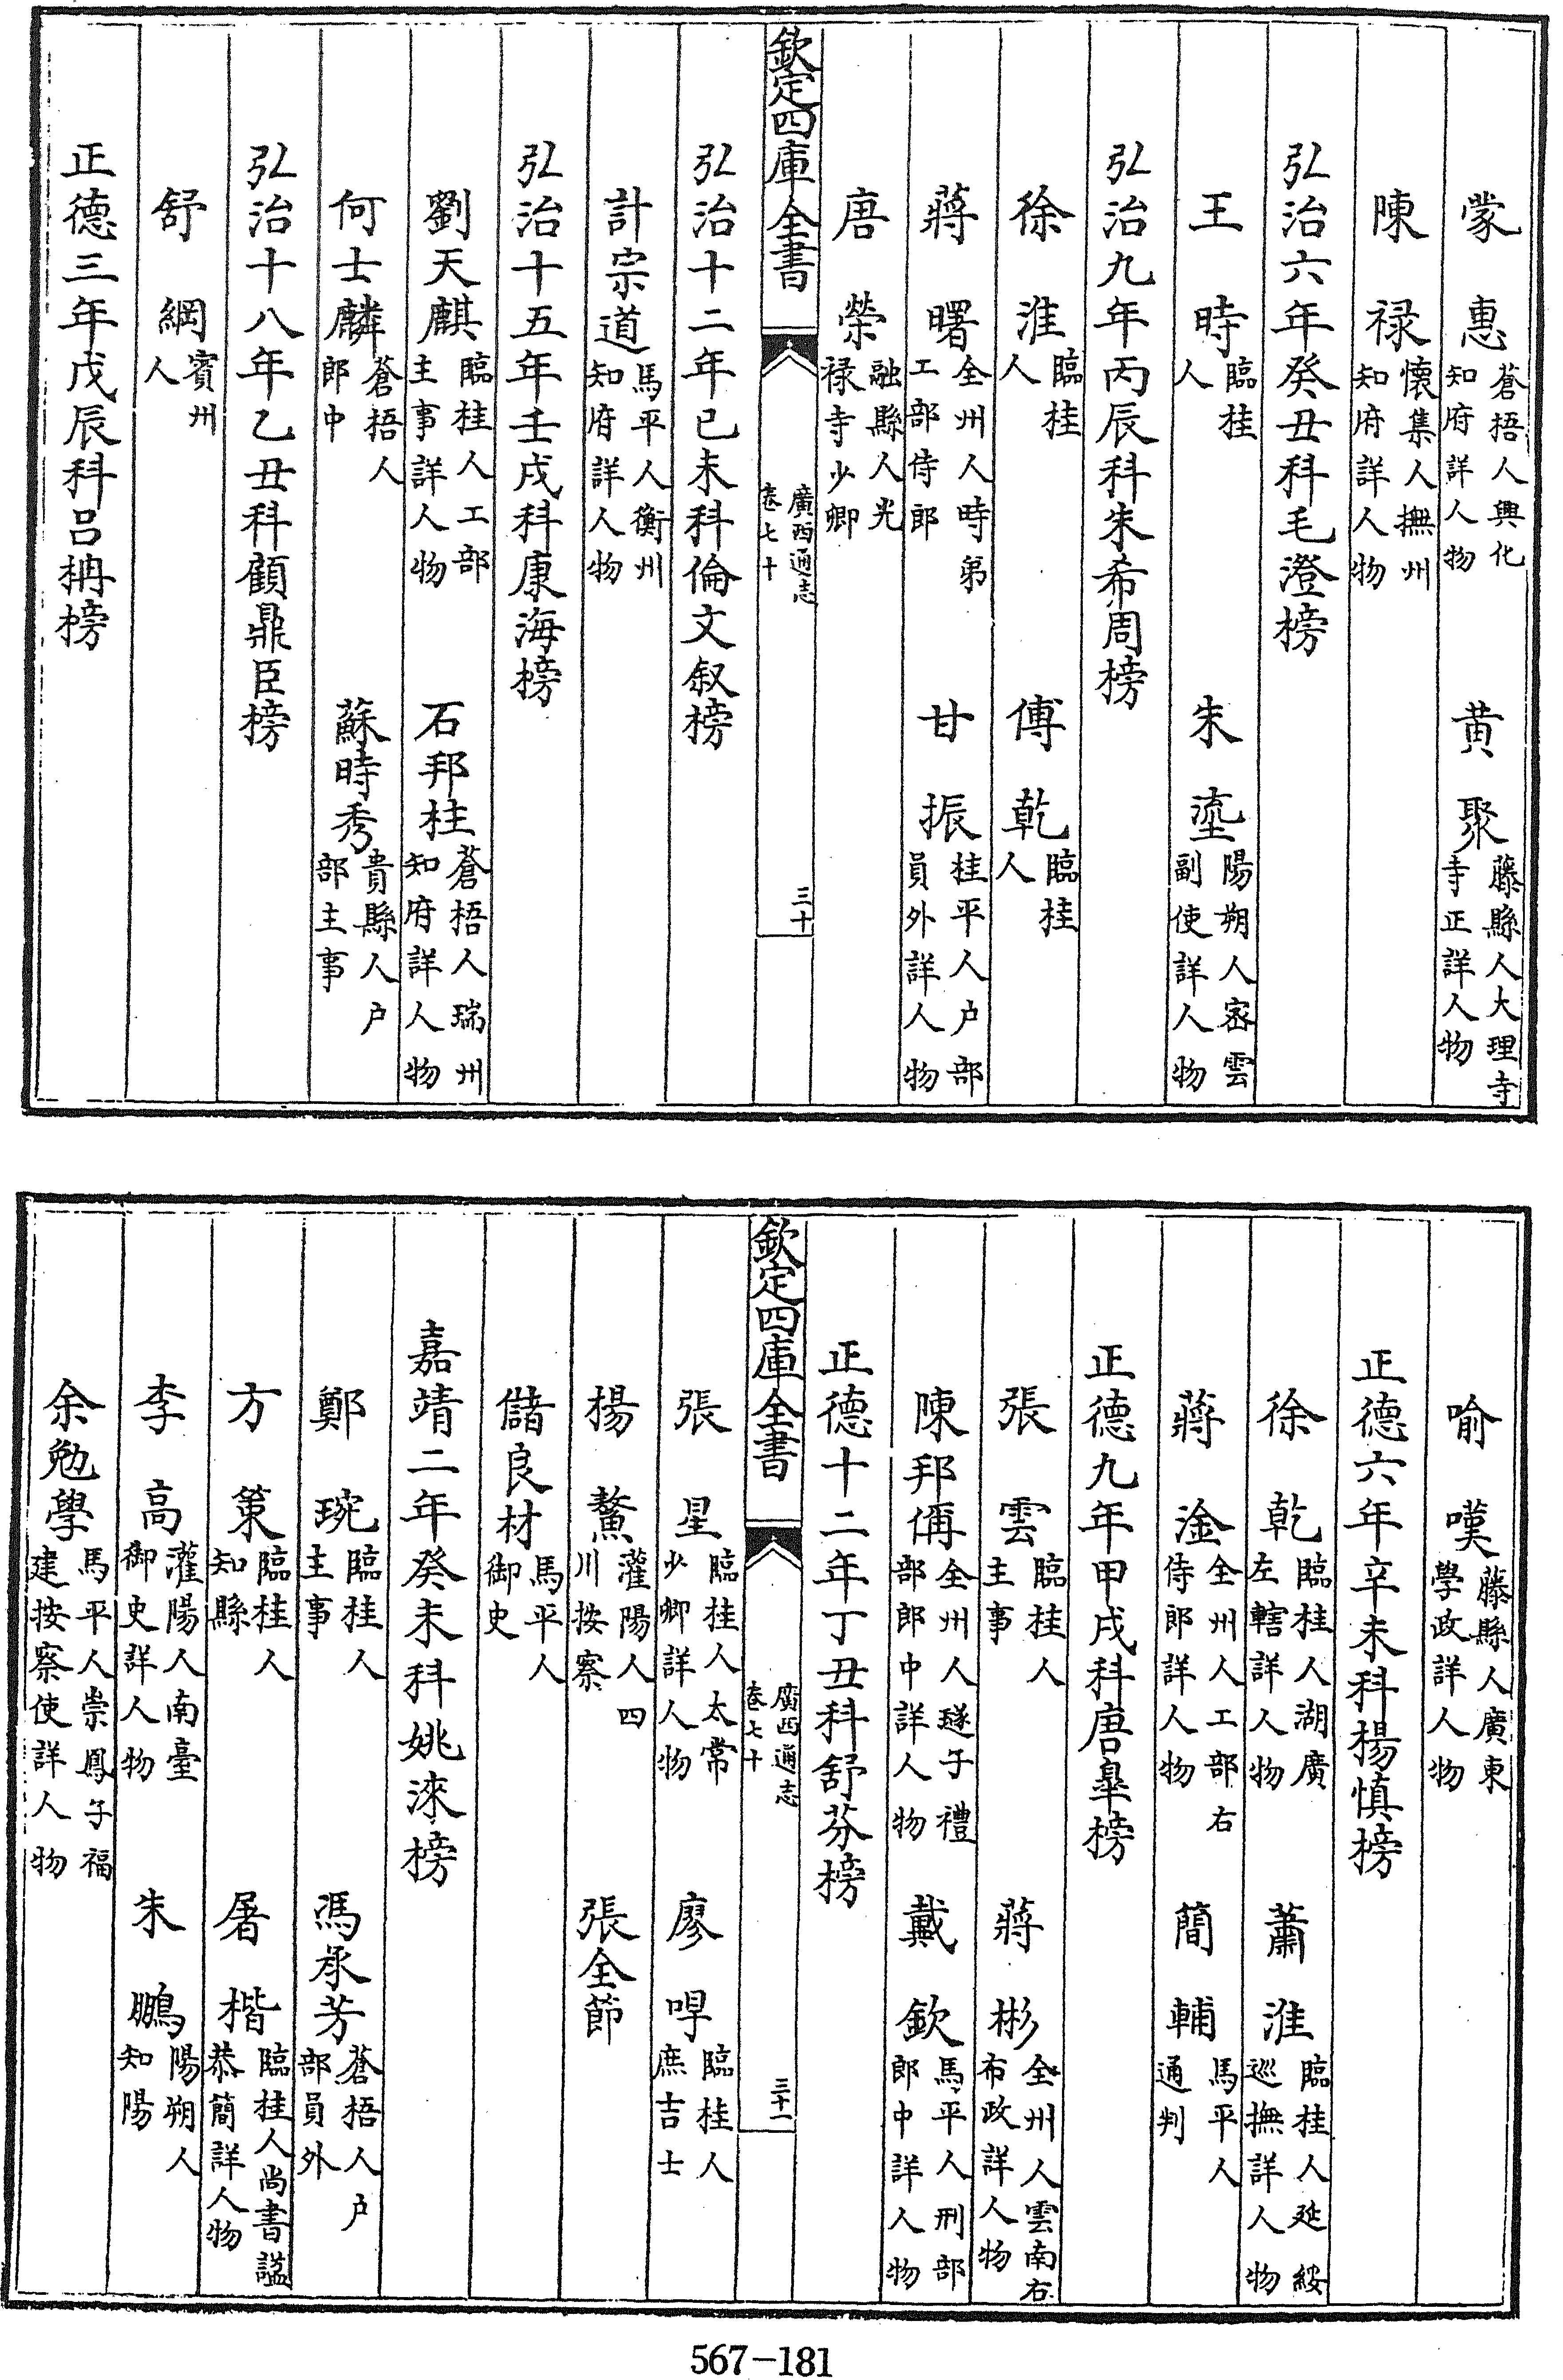 蒙惠蒼梧人興化知府詳人物　黄聚藤縣人大理寺寺正詳人物
陳禄懐集人撫州知府詳人物
弘治六年癸丑科毛澄榜
王時臨桂人　朱塗陽朔人宻雲副使詳人物
弘治九年丙辰科朱希周榜
徐淮臨桂人　傅乾臨桂人
蔣曙全州人時弟工部侍郎　甘振桂平人户部員外詳人物
唐榮融縣人光禄寺少卿
欽定四庫全書　廣西通志卷七十　三十
弘治十二年己未科倫文叙榜
計宗道馬平人衡州知府詳人物
弘治十五年壬戌科康海榜
劉天麒臨桂人工部主事詳人物　石邦柱蒼梧人瑞州知府詳人物
何士麟蒼梧人郎中　蘇時秀貴縣人户部主事
弘治十八年乙丑科顧鼎臣榜
舒綱賓州人
正德三年戊辰科吕柟榜
喻嘆藤縣人廣東學政詳人物
正德六年辛未科楊慎榜
徐乾臨桂人湖廣左轄詳人物　蕭淮臨桂人延綏巡撫詳人物
蔣淦全州人工部右侍郎詳人物　簡輔馬平人通判
正德九年甲戌科唐臯榜
張雲臨桂人主事　蔣彬全州人雲南右布政詳人物
陳邦偁全州人璲子禮部郎中詳人物　戴欽馬平人刑部郎中詳人物
正德十二年丁丑科舒芬榜
欽定四庫全書　廣西通志卷七十　三十一
張星臨桂人太常少卿詳人物　廖㖔臨桂人庶吉士
楊鰲灌陽人四川按察　張全節
儲良材馬平人御史
嘉靖二年癸未科姚淶榜
鄭琬臨桂人主事　馮承芳蒼梧人户部員外
方策臨桂人知縣　屠楷臨桂人尚書謚恭簡詳人物
李高灌陽人南臺御史詳人物　朱鵬陽朔人知陽
余勉學馬平人崇鳳子福建按察使詳人物
567-181